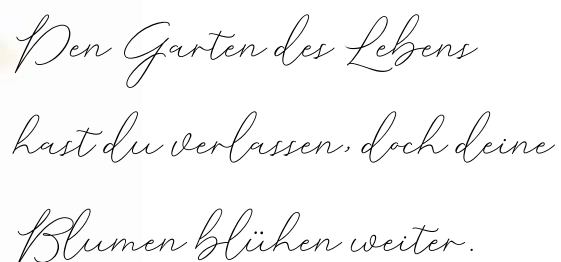 Den Garten des Lebens
hast du verlassen, doch deine
Blumen blühen weiter.